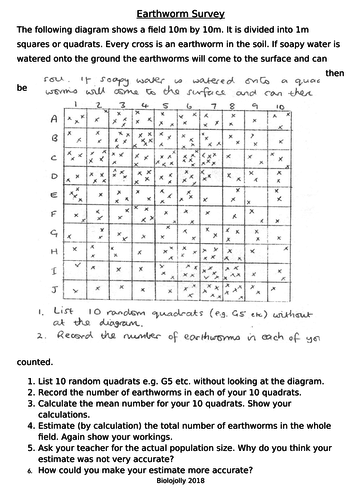 Earthworm Survey
The following diagram shows a field 10m by 10m. It is divided into 1m
squares or quadrats. Every cross is an earthworm in the soil. If soapy water is
watered onto the ground the earthworms will come to the surface and can
soil. If soapy water is watered onto a quad
then
be
worms will come to the surface and can then
1 2 3 4 5 6 7 8 9 10
A
B
C
D
E
F
G
H
I
J
1. List 10 random quadrats (e.g. G5 etc) without
at the diagram.
2. Record the number of earthworms in each of yo
counted.
1. List 10 random quadrats e.g. G5 etc. without looking at the diagram.
2. Record the number of earthworms in each of your 10 quadrats.
3. Calculate the mean number for your 10 quadrats. Show your
calculations.
4. Estimate (by calculation) the total number of earthworms in the whole
field. Again show your workings.
5. Ask your teacher for the actual population size. Why do you think your
estimate was not very accurate?
6. How could you make your estimate more accurate?
Biolojolly 2018